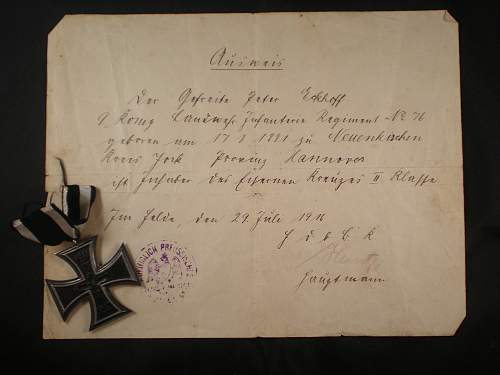 Ausweis
Der Gefreite Peter Eckhoff
9. Komp Landwehr Infanterie Regiment No 76
geboren am 17.3.1881 zu Neuenkirchen
Kreis Jork Provinz Hannover
ist Inhaber des Eisernen Kreuzes II Klasse
Im Felde, den 29. Juli 1916
Hauptmann
KÖNIGLICH PREUSSISCHES